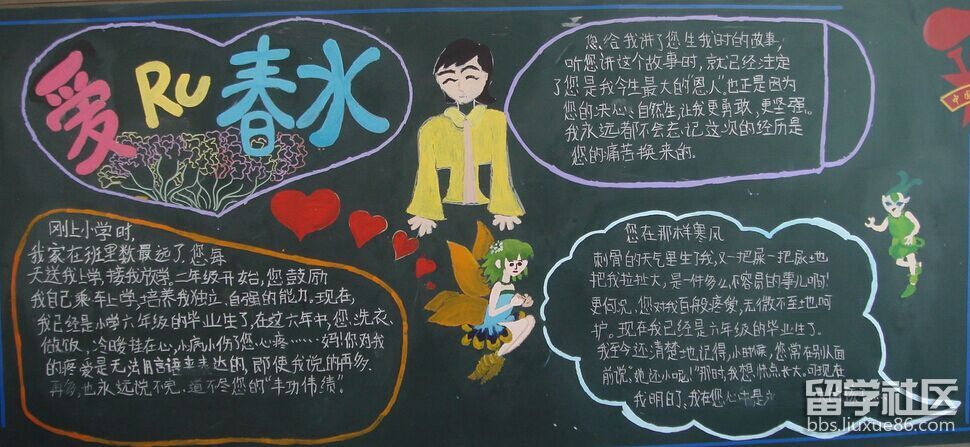 爱RU春水
您给我讲了您生我时的故事,
听您讲这个故事时,就已经注定
了您是我今生最大的"恩人"。也正是因为
您的决心、自然生,让我更勇敢、更坚强。
我永远都不会忘记这次的经历是
您的痛苦换来的。
刚上小学时,
我家在班里数最远了,您每
天送我上学,接我放学。二年级开始,您鼓励
我自己乘车上学,培养我独立、自强的能力。现在,
我已经是小学六年级的毕业生了,在这六年中,您洗衣、
做饭,冷暖挂在心,小病小伤了您心疼……妈!您对我
的疼爱是无法用言语来表达的,即使我说的再多、
再多,也永远说不完、道不尽您的"丰功伟绩"。
您在那样寒风
刺骨的天气里生了我,又一把屎一把尿地
把我拉扯大,是一件多么不容易的事儿啊!
更何况,您对我百般疼爱,无微不至地呵
护。现在我已经是六年级的毕业生了。
我至今还清楚地记得,小时候,您常在别人面
前说:"她还小呢!"那时,我想快点长大,可现在
我明白了,我在您心中是
中国
留学社区
bbs.liuxue86.com